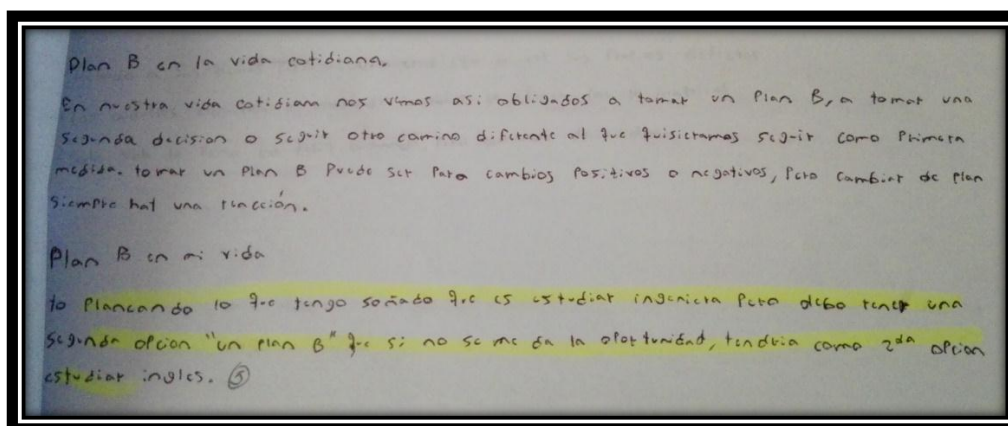 Plan B en la vida cotidiana.
En nuestra vida cotidiana nos vimos asi obligados a tomar un Plan B, a tomar una
segunda decision o seguir otro camino diferente al que quisieramos seguir como Primera
medida. tomar un Plan B Puede ser Para cambios Positivos o negativos, Pero cambiar de Plan
siempre hat una reacción.
Plan B en mi vida
Yo Planeando lo que tengo soñado que es estudiar ingenieria Pero debo tener una
segunda opcion "un plan B" que si no se me da la oportunidad, tendria como 2da opcion
estudiar ingles. 5